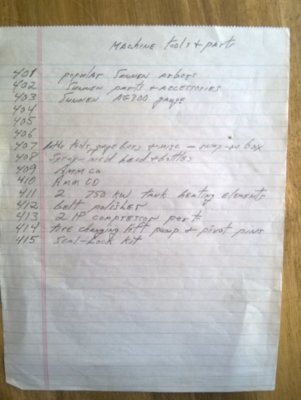 MACHINE tools + parts
401 popular Sunnen arbors
402 Sunnen parts + accessories
403 Sunnen AG300 gauge
404
405
406
407 tools, gage box + misc - snap-on box
408 and bottles
409 Ammco
410 Ammco
411 2 750 KW tank heating elements
412 belt polisher
413 2 HP compressor parts
414 tire changing lift pump + pivot pins
415 Seal-Lock kit